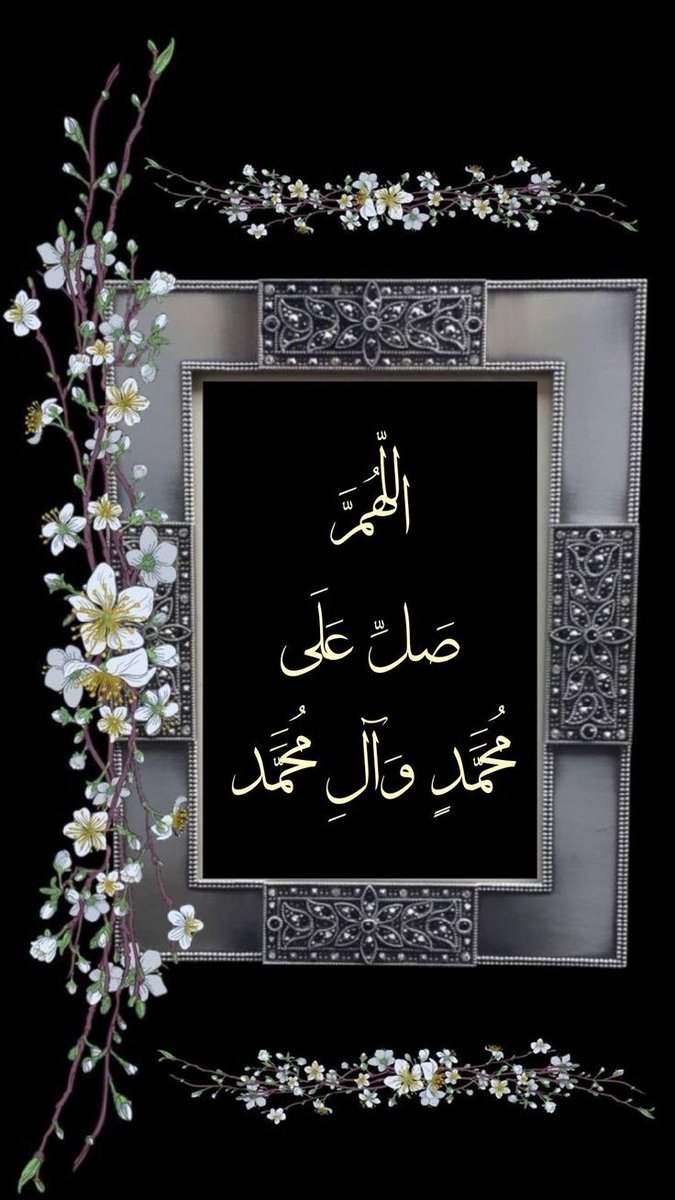 اللّٰهُمَّ
صَلِّ عَلَى
مُحَمَّدٍ وَآلِ مُحَمَّد